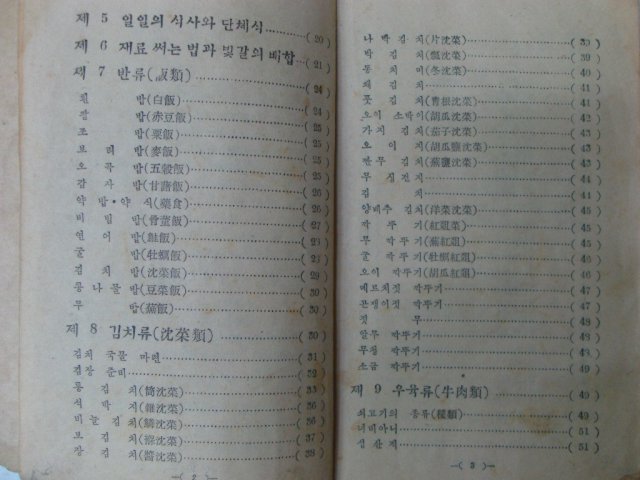 제 5 일일의 식사와 단체식 (20)
제 6 재료 써는 법과 빛갈의 배합 (21)
제 7 반류(飯類) (24)
흰 밥(白飯) (24)
팥 밥(赤豆飯) (25)
조 밥(粟飯) (25)
보리 밥(麥飯) (25)
오곡 밥(五穀飯) (25)
감자 밥(甘藷飯) (26)
약밥·약식(藥食) (26)
비빔 밥(骨董飯) (27)
연어 밥(鰱飯) (28)
굴 밥(牡蠣飯) (28)
김치 밥(沈菜飯) (29)
콩나물 밥(豆菜飯) (30)
무 밥(蕪飯) (30)
제 8 김치류(沈菜類) (30)
김치 국물 마련 (31)
김장 준비 (32)
통 김치(筒沈菜) (33)
석박지(雜沈菜) (36)
비늘 김치(鱗沈菜) (36)
보 김치(褓沈菜) (37)
장 김치(醬沈菜) (38)
—( 2 )—
나박 김치(片沈菜) (39)
박 김치(瓢沈菜) (39)
동치미(冬沈菜) (40)
채 김치 (41)
풋 김치(靑根沈菜) (41)
오이 소박이(胡瓜沈菜) (42)
가지 김치(茄子沈菜) (43)
오이지(胡瓜鹽沈菜) (44)
짠무 김치(蕪鹽沈菜) (44)
무싱건지 (44)
김치 (44)
양배추 김치(洋菜沈菜) (45)
깍두기(紅葅菜) (45)
무 깍두기(蕪紅葅) (45)
굴 깍두기(牡蠣紅葅) (46)
오이 깍두기(胡瓜紅葅) (46)
메르치젓 깍두기 (47)
곤쟁이젓 깍두기 (47)
짓무 (48)
알무 깍두기 (48)
무청 깍두기 (48)
소금 깍두기 (49)
제 9 우육류(牛肉類) (49)
쇠고기의 종류(種類) (49)
너비아니 (51)
섭산적 (51)
—( 3 )—